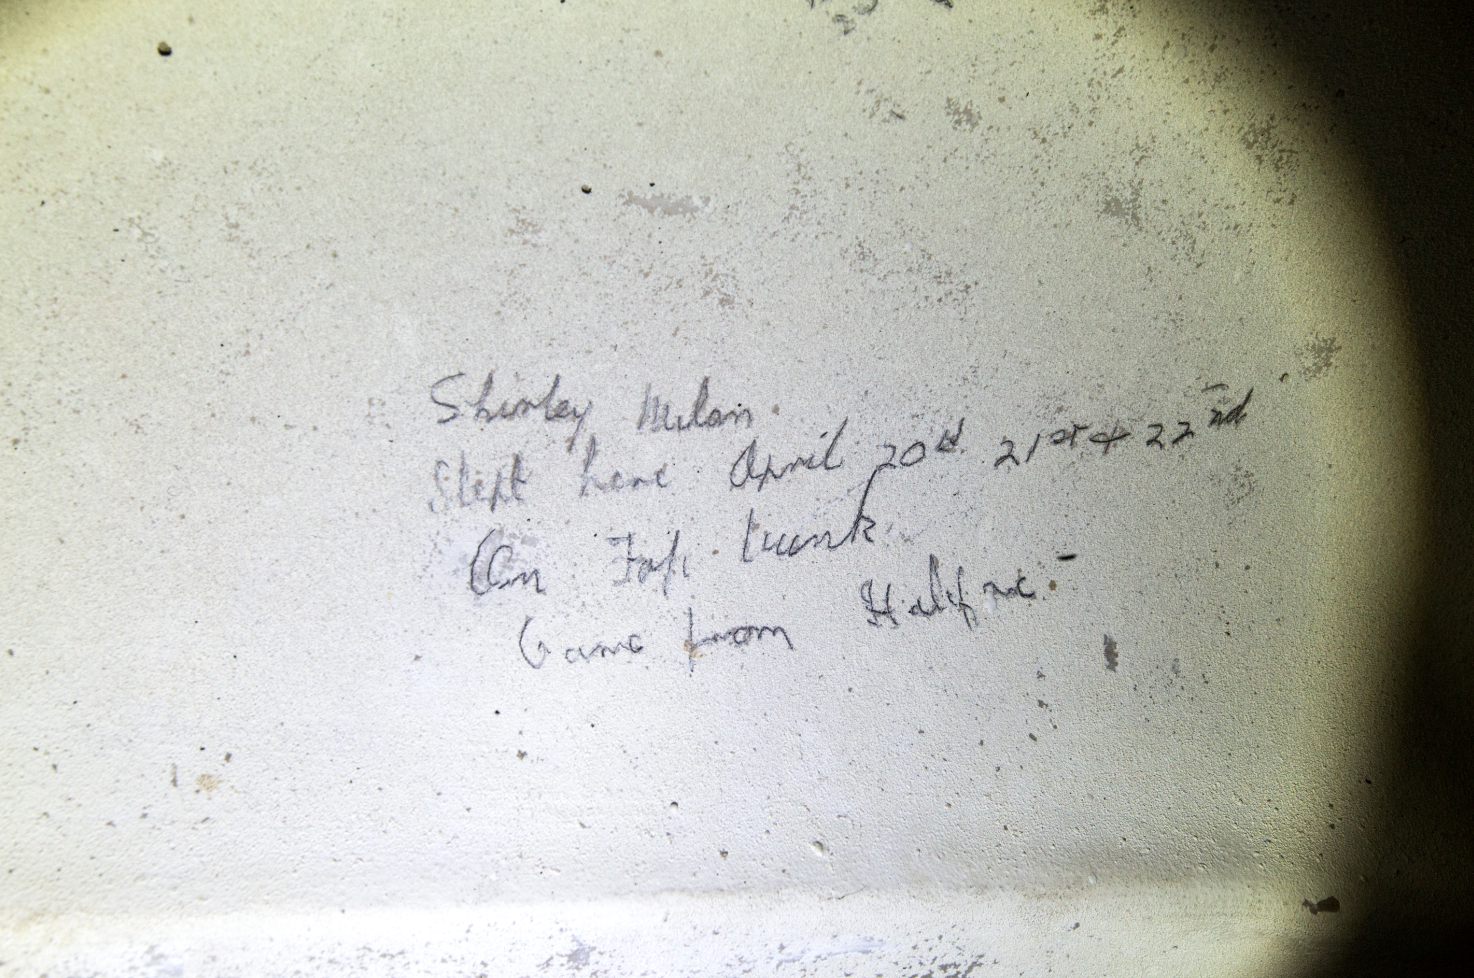 Shirley Milan
Slept here April 20th 21st + 22nd
On Top bunk
Came from Halifax -